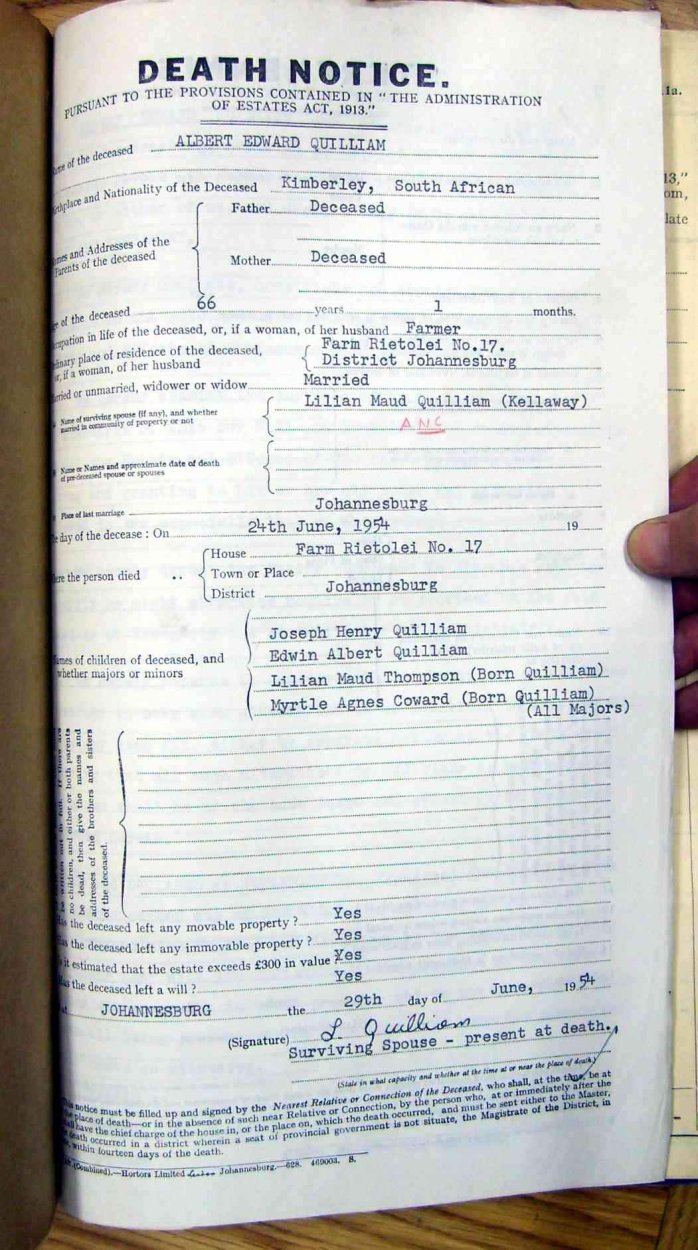 DEATH NOTICE.
PURSUANT TO THE PROVISIONS CONTAINED IN "THE ADMINISTRATION
OF ESTATES ACT, 1913."
of the deceased ALBERT EDWARD QUILLIAM
and Nationality of the Deceased Kimberley, South African
Father Deceased
and Addresses of the
Parents of the deceased
Mother Deceased
of the deceased 66 years 1 months.
in life of the deceased, or, if a woman, of her husband Farmer
place of residence of the deceased, Farm Rietolei No.17.
or, if a woman, of her husband District Johannesburg
or unmarried, widower or widow Married
Name of surviving spouse (if any), and whether Lilian Maud Quilliam (Kellaway)
married in community of property or not ANC
Name or Names and approximate date of death
of pre-deceased spouse or spouses
Place of last marriage Johannesburg
day of the decease : On 24th June, 1954 19
House Farm Rietolei No. 17
the person died .. Town or Place
District Johannesburg
Joseph Henry Quilliam
Edwin Albert Quilliam
of children of deceased, and
whether majors or minors Lilian Maud Thompson (Born Quilliam)
Myrtle Agnes Coward (Born Quilliam)
(All Majors)
no children, and either or both parents
be dead, then give the names and
addresses of the brothers and sisters
of the deceased.
the deceased left any movable property ? Yes
the deceased left any immovable property ? Yes
it estimated that the estate exceeds £300 in value ? Yes
the deceased left a will ? Yes
JOHANNESBURG the 29th day of June, 1954
(Signature) L Quilliam
Surviving Spouse - present at death.
(State in what capacity and whether at the time at or near the place of death)
notice must be filled up and signed by the Nearest Relative or Connection of the Deceased, who shall, at the time, be at
place of death—or in the absence of such near Relative or Connection, by the person who, at or immediately after the
have the chief charge of the house in, or the place on, which the death occurred, and must be sent either to the Master,
death occurred in a district wherein a seat of provincial government is not situate, the Magistrate of the District, in
within fourteen days of the death.
(Combined).—Hortors Limited Johannesburg.—628. 469003. S.
1a.
13,"
om,
late